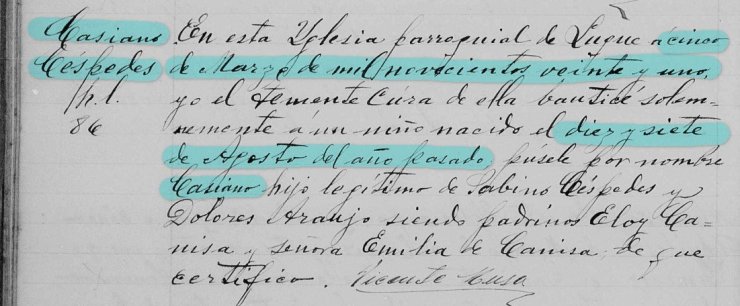 Casiano
Céspedes
h.l.
86
En esta Yglesia parroquial de Luque a cinco
de Marzo de mil novecientos veinte y uno,
yo el Temente Cura de ella bauticé solem-
nemente á un niño nacido el diez y siete
de Agosto del año pasado, púsele por nombre
Casiano hijo legítimo de Sabino Céspedes y
Dolores Araujo siendo padrinos Eloy Ca-
nisa y señora Emilia de Canisa, de que
certifico. Vicente